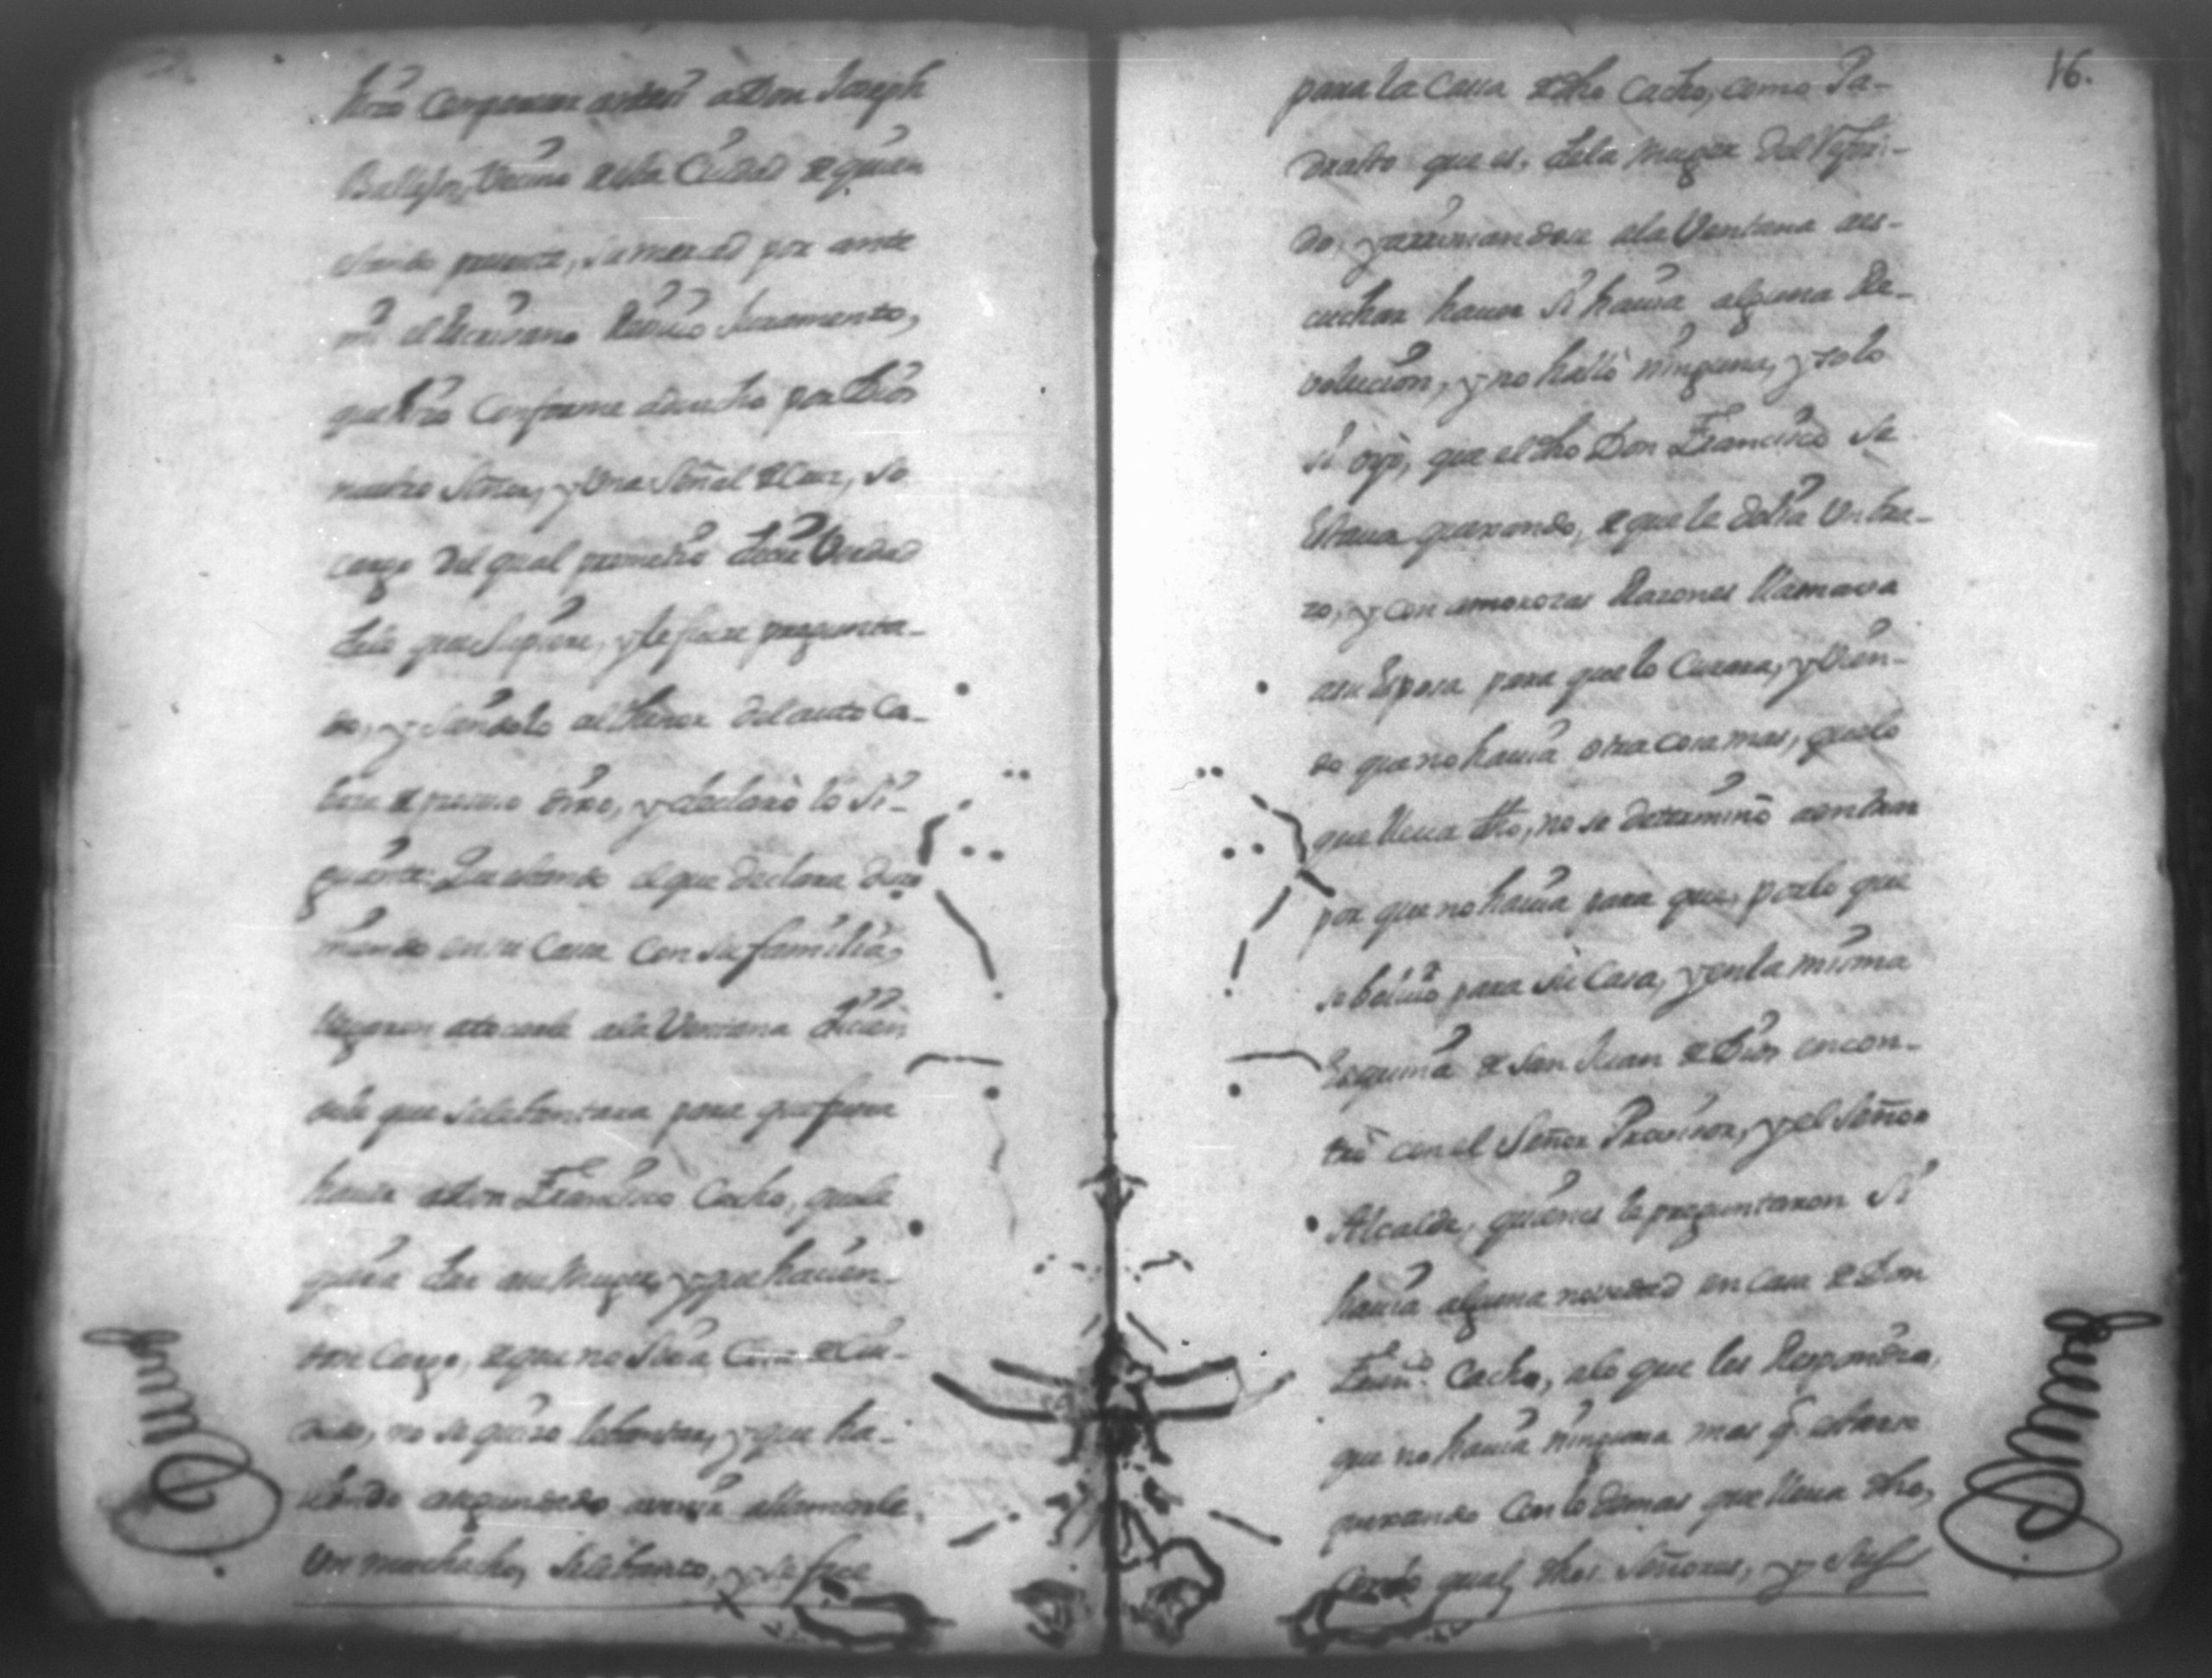 hizo Comparecer antesi a Don Joseph
Ballejos, Vecino de esta Ciudad de quien
estando presente, su merced por ante
mi el Escrivano Recivio Juramento,
que hizo Conforme a derecho por Dios
nuestro Señor, y una Señal de Cruz, so
cargo del qual prometio decir Verdad
de lo que Supiere, y le fuere pregunta-
do, y siendolo al thenor del auto Ca-
beza de proceso dixo, y declarò lo Si-
guiente: Que estando el que declara dur-
miendo en su Casa Con su familia,
llegaron atocarle ala Ventana dicien
dole que Selebantara para que fuera
haver a Don Francisco Cacho, que le
queria dar asu Muger, y que havien-
dose Cargo, de que no Seria Cosa de Cui-
dado, no se quizo lebantar, y que ha-
viendo segundado avenir allamarle
Un muchacho, Selebanto, y se fue
16.
para la Casa de dho Cacho, como Pa-
drasto que es, dela Muger del Referi-
do, y arrimandose ala Ventana aes-
cuchar haver Si havia alguna Re-
volucion, y no hallò ninguna, y solo
si oyò, que el dho Don Francisco Se
Estava quexando, de que le dolia Un bra-
zo, y con amorozas Razones llamava
asu Esposa para que lo Curara, y Vien-
do que no havia otra cosa mas, que lo
que lleva dho, no se determinò aentrar
por que no havia para que, por lo que
se bolvio para su Casa, y en la misma
Esquina de San Juan de Dios encon-
trò con el Señor Provisor, y el Señor
Alcalde, quienes le preguntaron Si
havia alguna novedad en Casa de Don
Franco. Cacho, alo que les Respondio,
que no havia ninguna mas q. estarse
quexando Con lo demas que lleva dho,
Con lo qual, dhos Señores, y Su